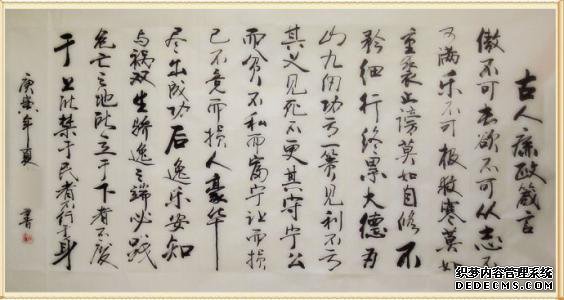 古人廉政箴言
傲不可长欲不可从志不
可满乐不可极救寒莫如
重裘止谤莫如自修不
矜细行终累大德为
山九仞功亏一篑见利不亏
其义见死不更其守宁公
而贫不私而富宁让而损
己不竞而损人豪华
尽出成功后逸乐安知
与祸双生骄逸之端必践
危亡之地所立于下者不废
于上所禁于民者不行于身
庚寅年夏
書
织梦内容管理系统
DEDECMS.COM